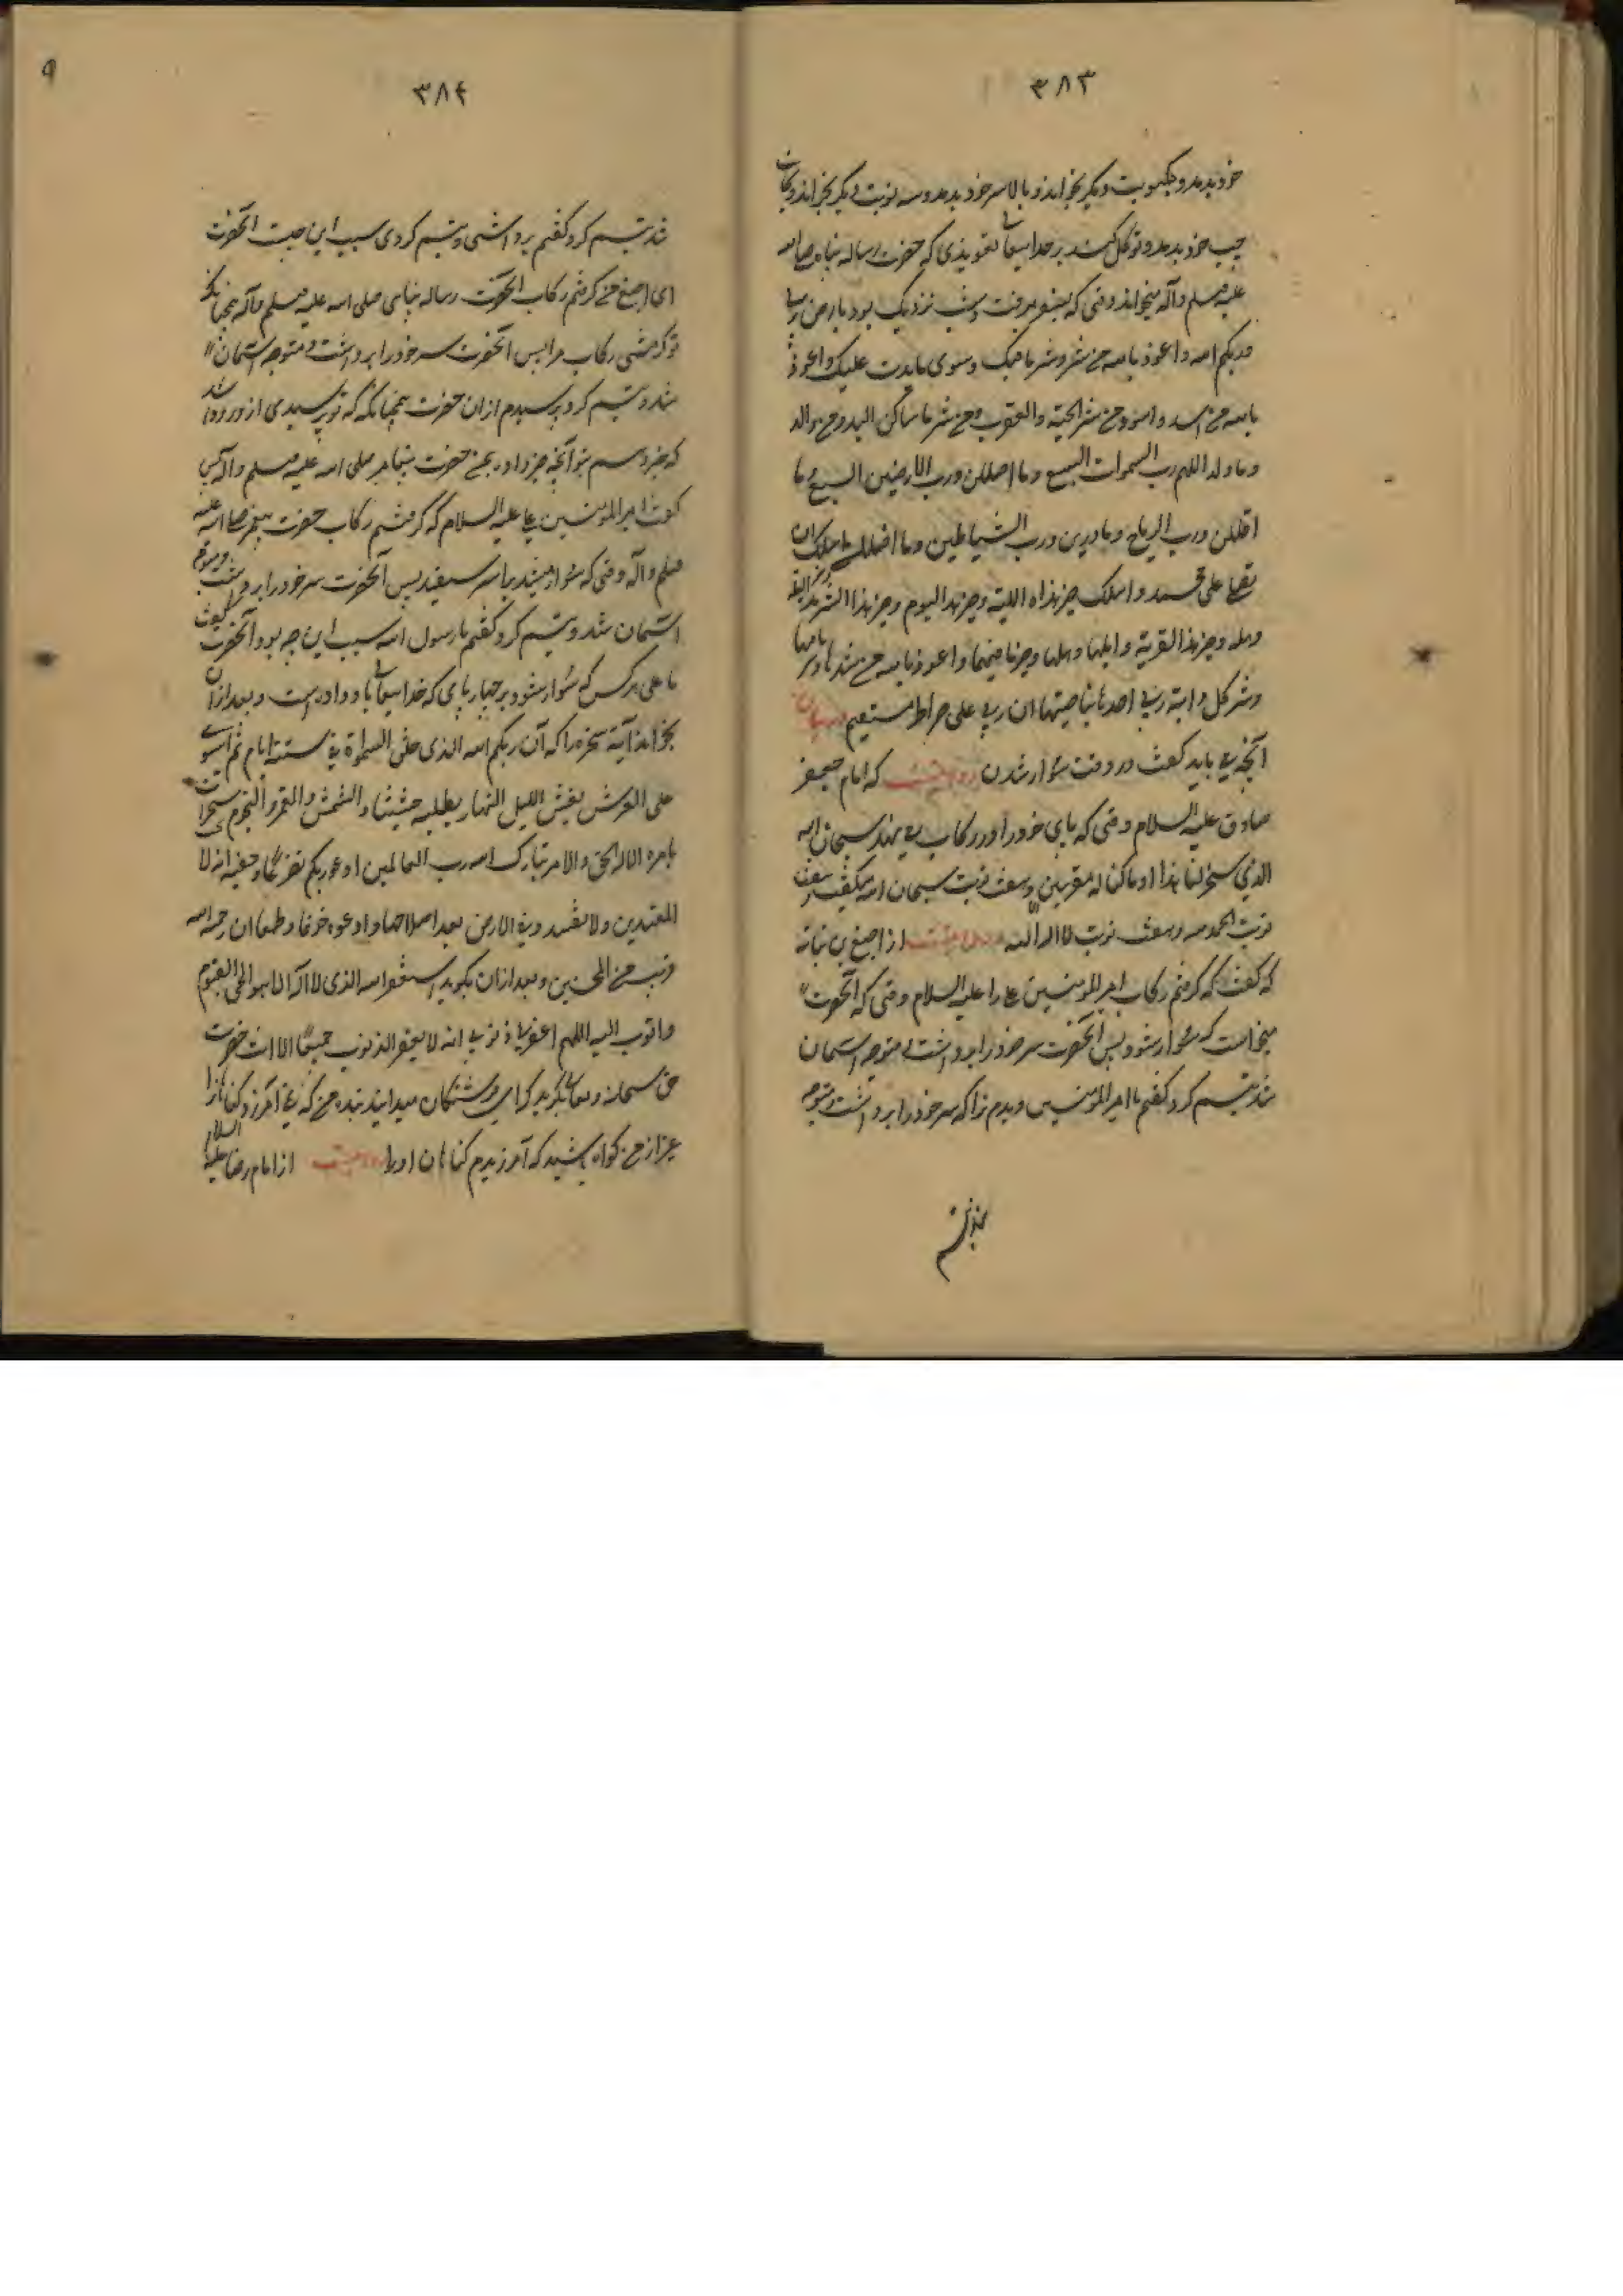 ۳۸۳
خود بدمد و یکنوبت دیکر بخواند و بالا سر خود بدمد و سه نوبت دیکر بخواند و بجانب
جیب خود بدمد و توکل کند بر خدایتعالی تعویذی که حضرت رساله پناه صلی الله
علیه و سلم و آله میخواند وقتی که بسفر میرفت و شب نزدیک بود یا ارض ربی
وربکم الله واعوذ بالله من شرک وشر ما فیک وسوی ما یدب علیک واعوذ
بالله من اسد واسود من شر الحیة والعقرب ومن شر ساکن البلد ومن والد
وما ولد اللهم رب السموات السبع وما اظللن ورب الارضین السبع وما
اقللن ورب الریاح وما ذرین ورب الشیاطین وما اضللن اسئلک ان
تصلی علی محمد واسئلک خیر هذه اللیلة وخیر هذا الیوم وخیر هذا الشهر
وخیر هذا القریة واهلها وخیر ما فیها واعوذ بالله من شرها وشر ما فیها
وشر کل دابة ربی اخذ بناصیتها ان ربی علی صراط مستقیم در بیان
آنچه می باید کفت در وقت سوار شدن روایتست که امام جعفر
صادق علیه السلام وقتی که پای خود را در رکاب می نهند سبحان الله
الذی سخر لنا هذا وما کنا له مقرنین وهفت نوبت سبحان الله میکفتند هفت
نوبت الحمد لله وهفت نوبت لا اله الا الله و روایتست از اصبغ بن نباته
که کفت که کرفتم رکاب امیر المؤمنین علی را علیه السلام وقتی که آنحضرت
میخواست که سوار شود پس آنحضرت سر خود را برداشت متوجه آسمان
شد تبسم کرد کفتم یا امیر المؤمنین دیدم ترا که سر خود را برداشت متوجه
۳۸۴
شد تبسم کرد کفتم برداشتی و تبسم کردی سبب این چیست آنحضرت
ای اصبغ من کرفتم رکاب آنحضرت رساله پناهی صلی الله علیه و سلم و آله همچنانکه
تو کرفتی رکاب مرا پس آنحضرت سر خود را برداشت و متوجه آسمان
شد و تبسم کرد پرسیدم از آن حضرت همچنانکه تو پرسیدی از ورود
که خبر دهم بتو آنچه خبر داد بمن حضرت پیغامبر صلی الله علیه و سلم و آله پس
کفت امیر المؤمنین علی علیه السلام که کرفتم رکاب حضرت پیغمبر صلی الله علیه
وسلم وآله وقتی که سوار میشد پس آنحضرت سر خود را برداشت ومتوجه
آسمان شد و تبسم کرد کفتم یا رسول الله سبب این چه بود آنحضرت کفت
یا علی هر کس که سوار شود بر چهارپای که خدایتعالی باو داده است و بعد از آن
بخواند آیة سخره را که آن ربکم الله الذی خلق السموات فی ستة ایام ثم استوی
علی العرش یغشی اللیل النهار یطلبه حثیثا والشمس والقمر والنجوم مسخرات
بامره الا له الخلق والامر تبارک الله رب العالمین ادعوا ربکم تضرعا وخفیة انه لا
المعتدین ولا تفسدوا فی الارض بعد اصلاحها وادعوه خوفا وطمعا ان رحمة الله
قریب من المحسنین وبعد از آن بکوید استغفر الله الذی لا اله الا هو الحی القیوم
واتوب الیه اللهم اغفر لی ذنوبی انه لا یغفر الذنوب جمیعا الا انت حضرت
حق سبحانه وتعالی بکوید که ای فرشتکان میدانید بنده من که نمی آمرزد کناهانرا
غیر از من کواه باشید که آمرزیدم کناهان او را روایتست از امام رضا علیه السلام